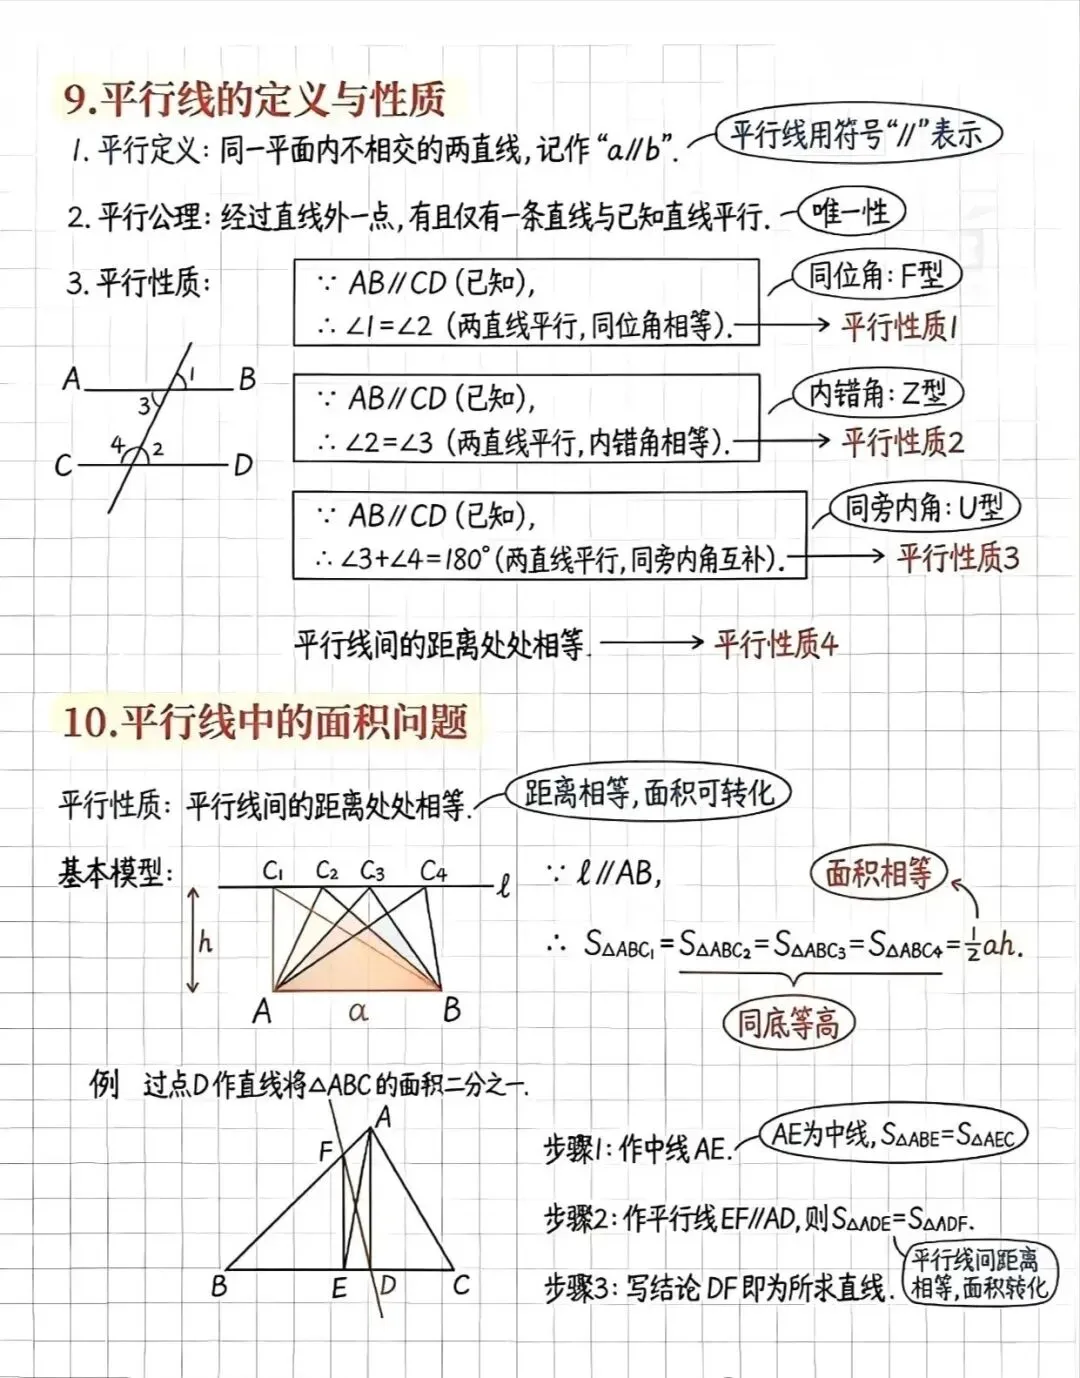 9.平行线的定义与性质
1. 平行定义：同一平面内不相交的两直线，记作“a∥b”.
平行线用符号“∥”表示
2. 平行公理：经过直线外一点，有且仅有一条直线与已知直线平行.
唯一性
3. 平行性质：
∵ AB∥CD (已知),
∴ ∠1=∠2 (两直线平行，同位角相等).
同位角：F型
平行性质1
A
B
C
D
1
3
4
2
∵ AB∥CD (已知),
∴ ∠2=∠3 (两直线平行，内错角相等).
内错角：Z型
平行性质2
∵ AB∥CD (已知),
∴ ∠3+∠4=180° (两直线平行，同旁内角互补).
同旁内角：U型
平行性质3
平行线间的距离处处相等.
平行性质4
10.平行线中的面积问题
平行性质：平行线间的距离处处相等.
距离相等，面积可转化
基本模型：
C₁ C₂ C₃ C₄ ℓ
h
A a B
∵ ℓ∥AB,
∴ S△ABC₁=S△ABC₂=S△ABC₃=S△ABC₄=½ah.
面积相等
同底等高
例 过点D作直线将△ABC的面积二分之一.
A
F
B E D C
步骤1：作中线AE.
AE为中线，S△ABE=S△AEC
步骤2：作平行线EF∥AD,则S△ADE=S△ADF.
平行线间距离
相等，面积转化
步骤3：写结论DF即为所求直线.